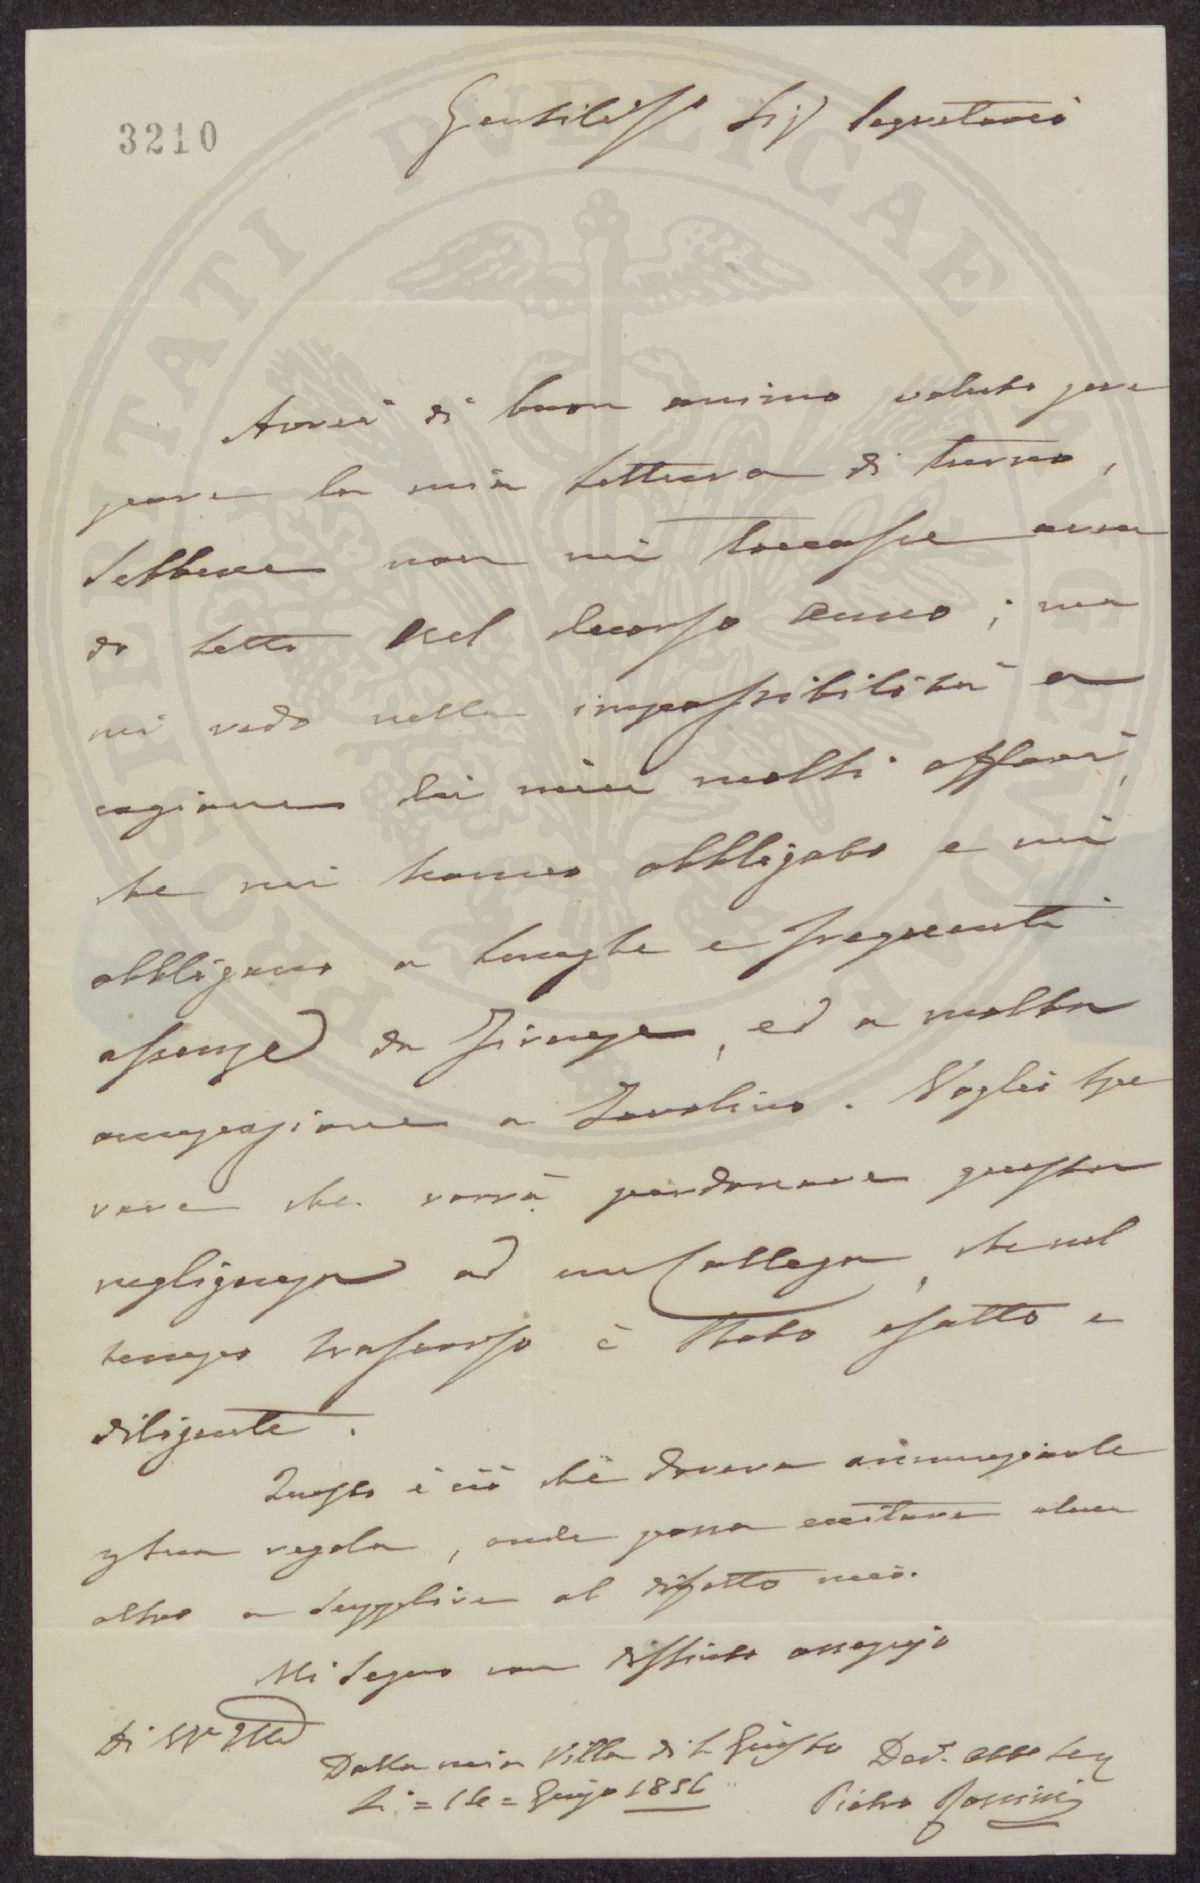 3210
Gentiliss.º Sig.r Segretario
Avrei di buon animo voluto pre
parare la mia lettura di turno,
sebbene non mi toccasse aven
do letto nel decorso anno; ma
mi vedo nella impossibilità a
cagione dei miei molti affari,
che mi hanno obbligato e mi
obbligano a lunghe e frequenti
assenze da Firenze, ed a molta
occupazione a Tavolino. Voglio spe
rare che vorrà perdonare questa
negligenza ad un Collega, che nel
tempo trascorso è stato esatto e
diligente.
Questo è ciò che doveva annunziarle
per sua regola, onde possa eccitare alcun
altro a supplire al difetto mio.
Mi segno con distinto ossequio
Di VS Ill.a
Dalla mia Villa di S. Giusto
Li = 14 = Giug.o 1856
Dev. Obb. Ser
Pietro
PROSPERITATI PUBLICAE AUGENDAE